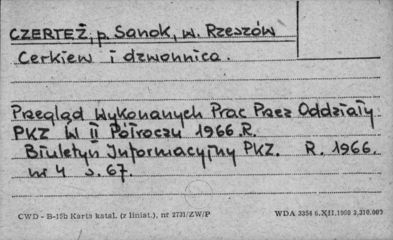 CZERTEŻ, p. Sanok, w. Rzeszów
Cerkiew i dzwonnica.
Przegląd Wykonanych Prac Przez Oddziały
PKZ W II Półroczu 1966.R.
Biuletyn Informacyjny PKZ. R. 1966.
nr 4 s. 67.
CWD - B-15b Karta katal. (z liniat.), nr 2731/ZW/P
WDA 3354 6.XII.1958 2.210.000